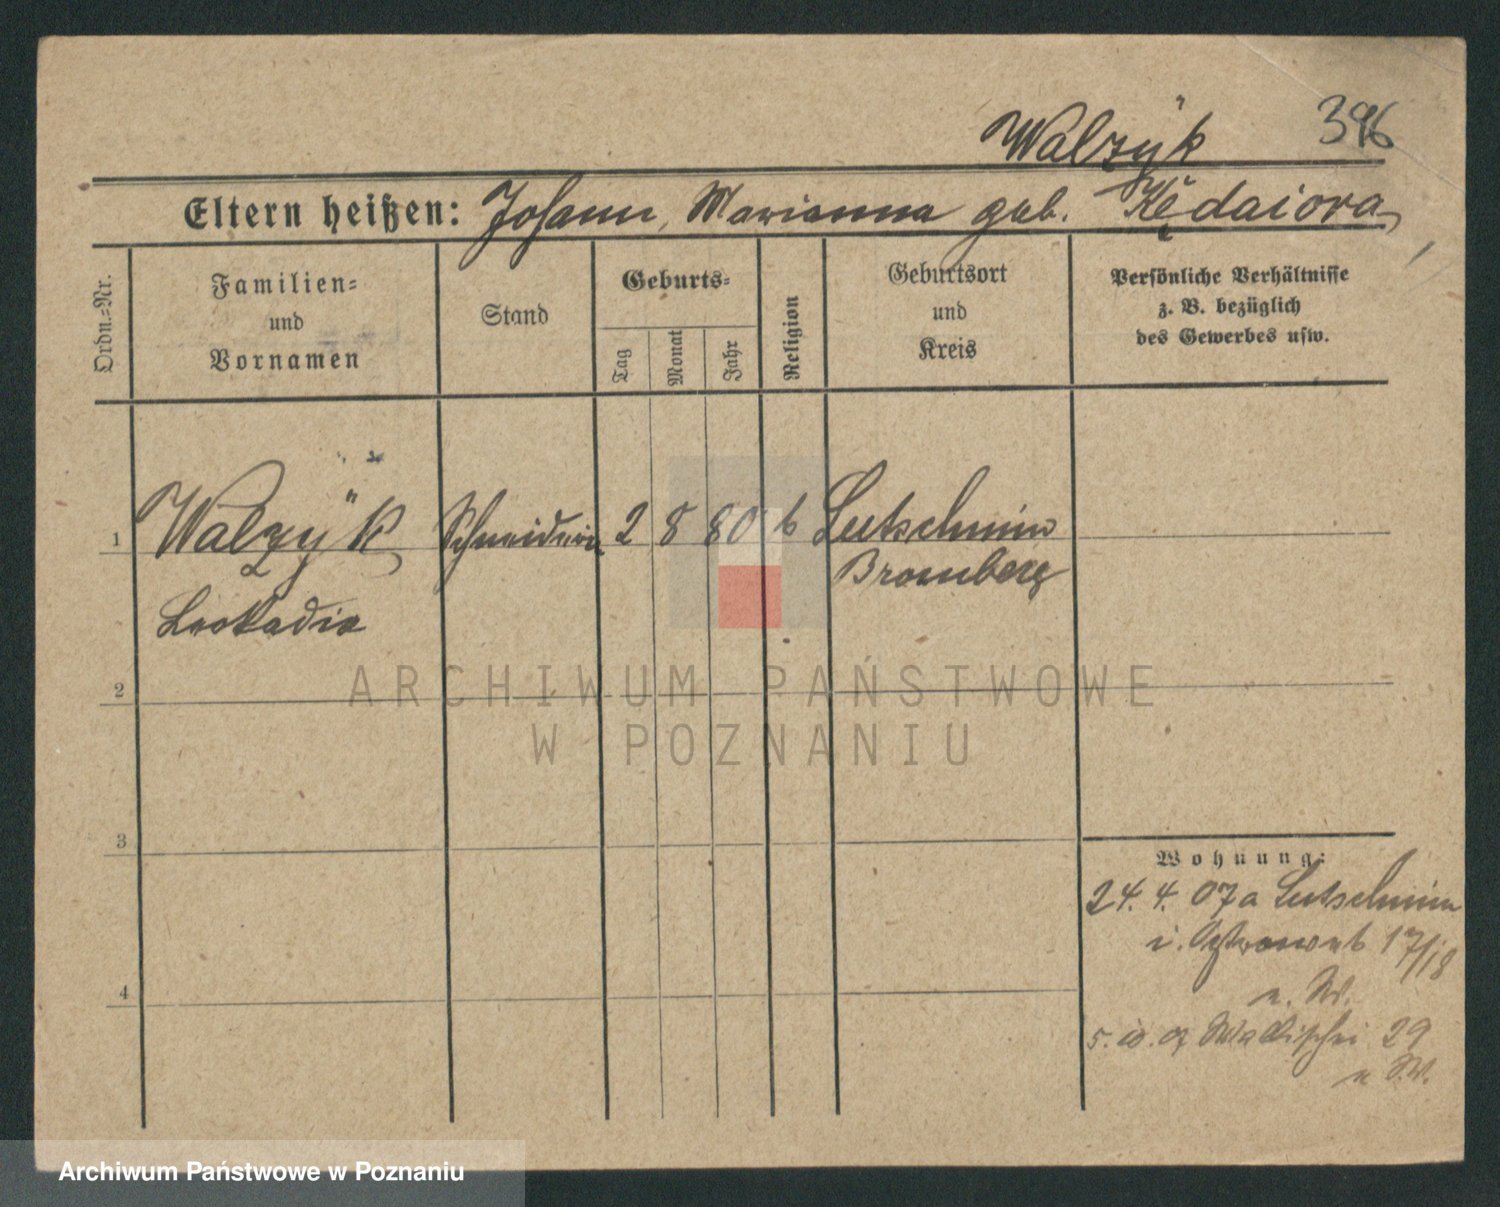 Walzÿk
396
Eltern heißen: Johann, Marianna geb. Kędziora
Ordn.=Nr.
Familien=
und
Vornamen
Stand
Geburts=
Tag
Monat
Jahr
Religion
Geburtsort
und
Kreis
Persönliche Verhältnisse
z. B. bezüglich
des Gewerbes usw.
1 Walzÿk Schneiderin 2 8 80 k Lutschmin
Bromberg
Leokadia
2
3
4
Wohnung:
24. 4. 07 a Lutschmin
i. 17/18
5. 10. 07 Wallischei 29
ARCHIWUM PAŃSTWOWE
W POZNANIU
Archiwum Państwowe w Poznaniu